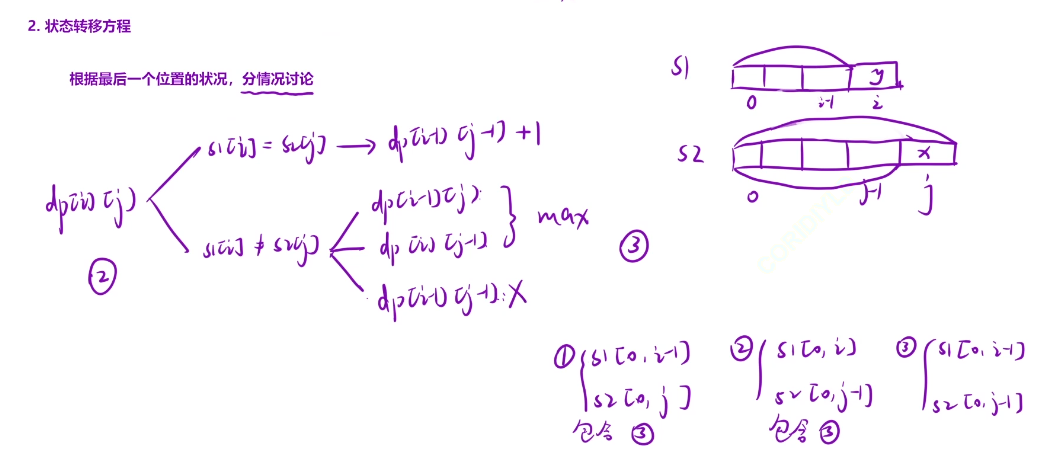 2. 状态转移方程
根据最后一个位置的状况，分情况讨论
dp[i][j]
s1[i] = s2[j] → dp[i-1][j-1] + 1
s1[i] ≠ s2[j]
dp[i-1][j]
dp[i][j-1]
max
dp[i-1][j-1] ×
②
③
s1
y
0 i-1 i
s2
x
0 j-1 j
① s1[0, i-1]
s2[0, j]
包含 ③
② s1[0, i]
s2[0, j-1]
包含 ③
③ s1[0, i-1]
s2[0, j-1]